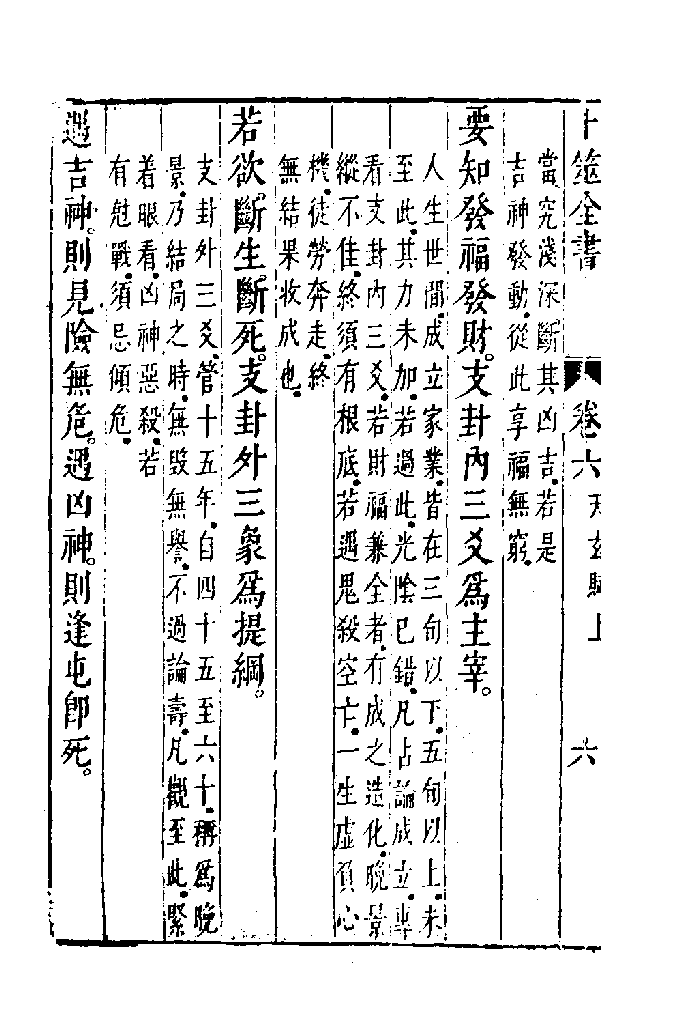 卜筮全書 卷六 天玄賦上 六
當究淺深斷其凶吉若是
吉神發動從此享福無窮
要知發福發財支卦內三爻爲主宰
人生世間成立家業皆在三旬以下五旬以上未
至此其力未加若過此光陰已錯凡占論成立專
看支卦內三爻若財福兼全者有成之造化晚景
縱不佳終須有根底若遇鬼殺空亡一生虛負心
機徒勞奔走終
無結果收成也
若欲斷生斷死支卦外三象爲提綱
支卦外三爻管十五年自四十五至六十稱爲晚
景乃結局之時無毀無譽不過論壽凡觀至此緊
着眼看凶神惡殺若
有尅戰須忌傾危
遇吉神則見險無危遇凶神則逢屯卽死